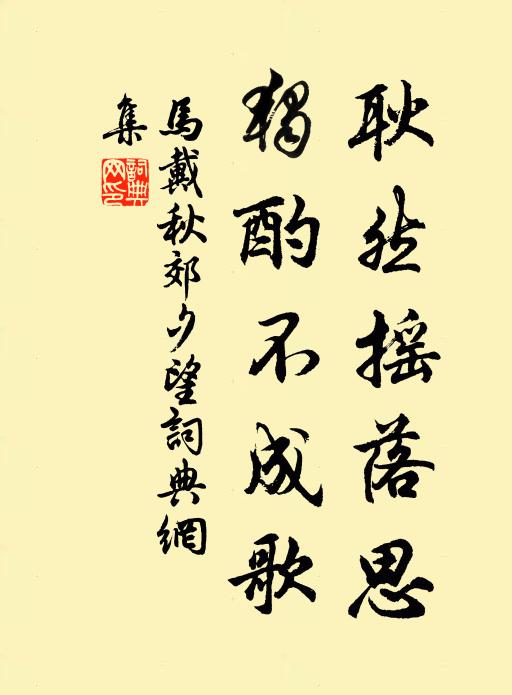 耿然摇落思
獨酌不成歌
馬戴秋郊夕望詞典網
集
詞典
网印